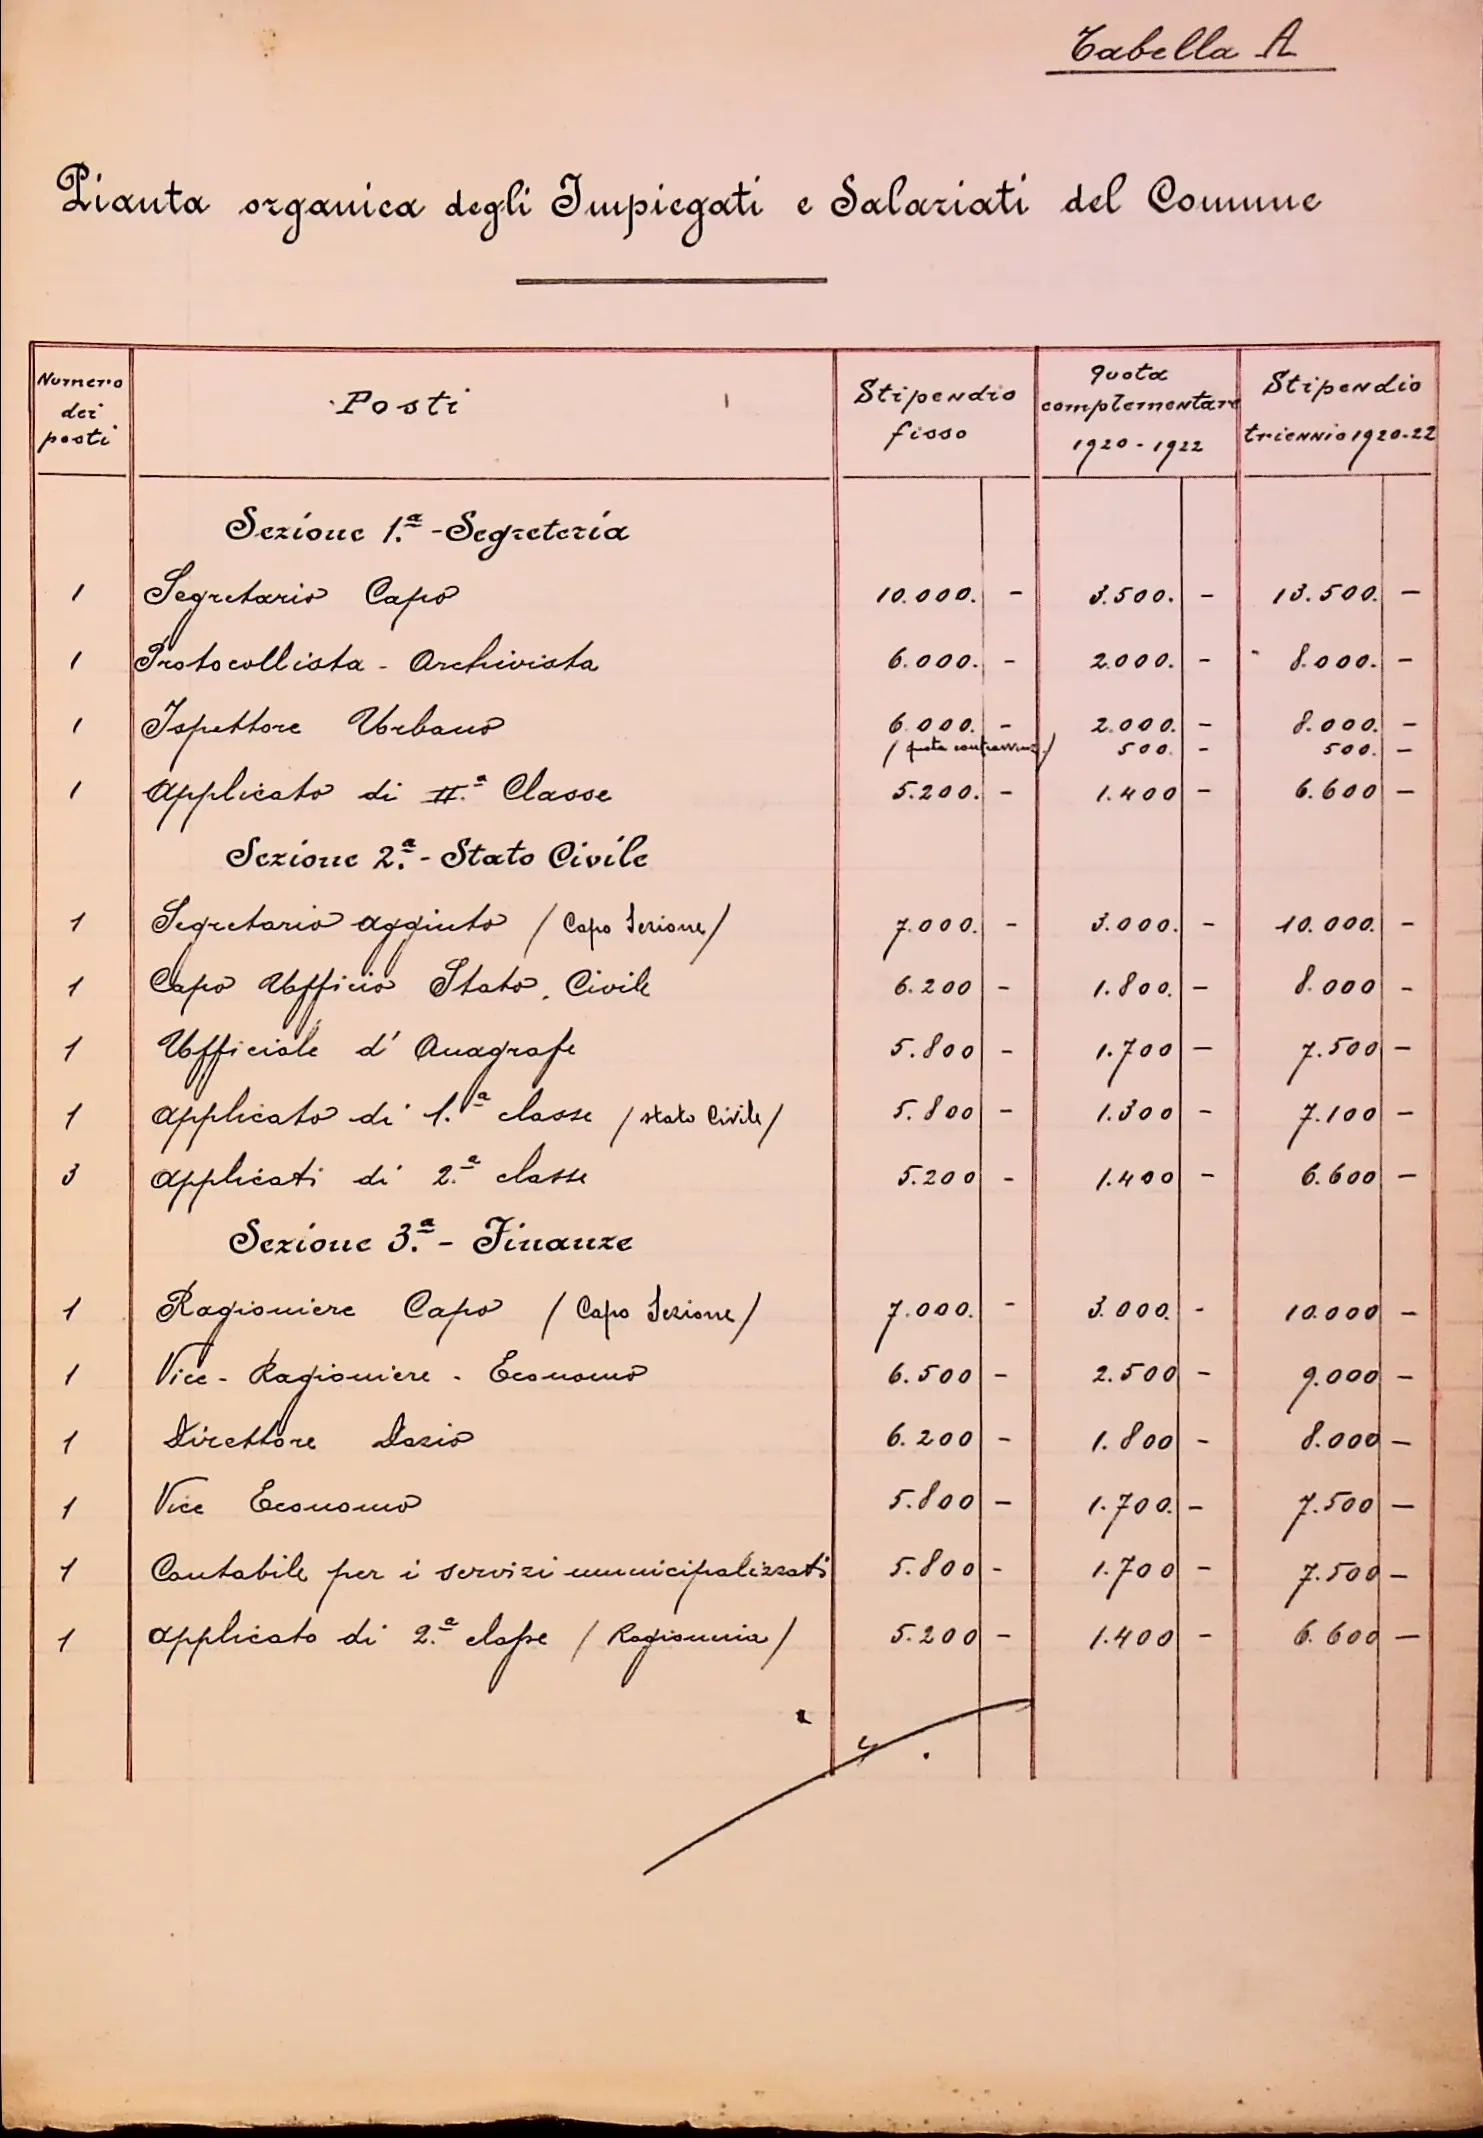 Tabella A
Pianta organica degli Impiegati e Salariati del Comune
Numero dei posti | Posti | Stipendio fisso | quota complementare 1920-1922 | Stipendio triennio 1920-22
Sezione 1.ª - Segreteria
1 Segretario Capo 10.000. - 3.500. - 13.500. -
1 Protocollista - Archivista 6.000. - 2.000. - 8.000. -
1 Ispettore Urbano 6.000. - 2.000. - 8.000. -
/ quota contravvenz. / 500. - 500. -
1 Applicato di II.ª Classe 5.200. - 1.400 - 6.600 -
Sezione 2.ª - Stato Civile
1 Segretario aggiunto / Capo Sezione / 7.000. - 3.000. - 10.000. -
1 Capo Ufficio Stato Civile 6.200 - 1.800. - 8.000 -
1 Ufficiale d'Anagrafe 5.800 - 1.700 - 7.500 -
1 Applicato di 1.ª classe / stato Civile / 5.800 - 1.300 - 7.100 -
3 Applicati di 2.ª classe 5.200 - 1.400 - 6.600 -
Sezione 3.ª - Finanze
1 Ragioniere Capo / Capo Sezione / 7.000. - 3.000. - 10.000 -
1 Vice - Ragioniere - Economo 6.500 - 2.500 - 9.000 -
1 Direttore Dazio 6.200 - 1.800 - 8.000 -
1 Vice Economo 5.800 - 1.700. - 7.500 -
1 Contabile per i servizi municipalizzati 5.800 - 1.700 - 7.500 -
1 Applicato di 2.ª classe / Ragioneria / 5.200 - 1.400 - 6.600 -